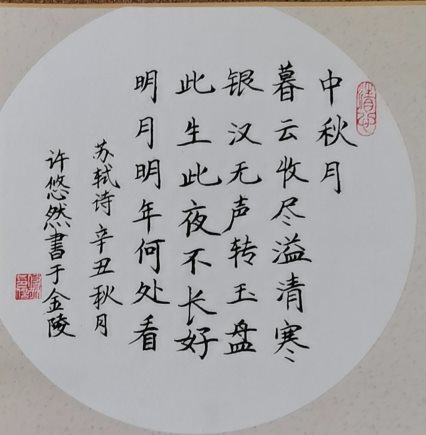 中秋月
暮云收尽溢清寒
银汉无声转玉盘
此生此夜不长好
明月明年何处看
苏轼诗辛丑秋月
许悠然書于金陵